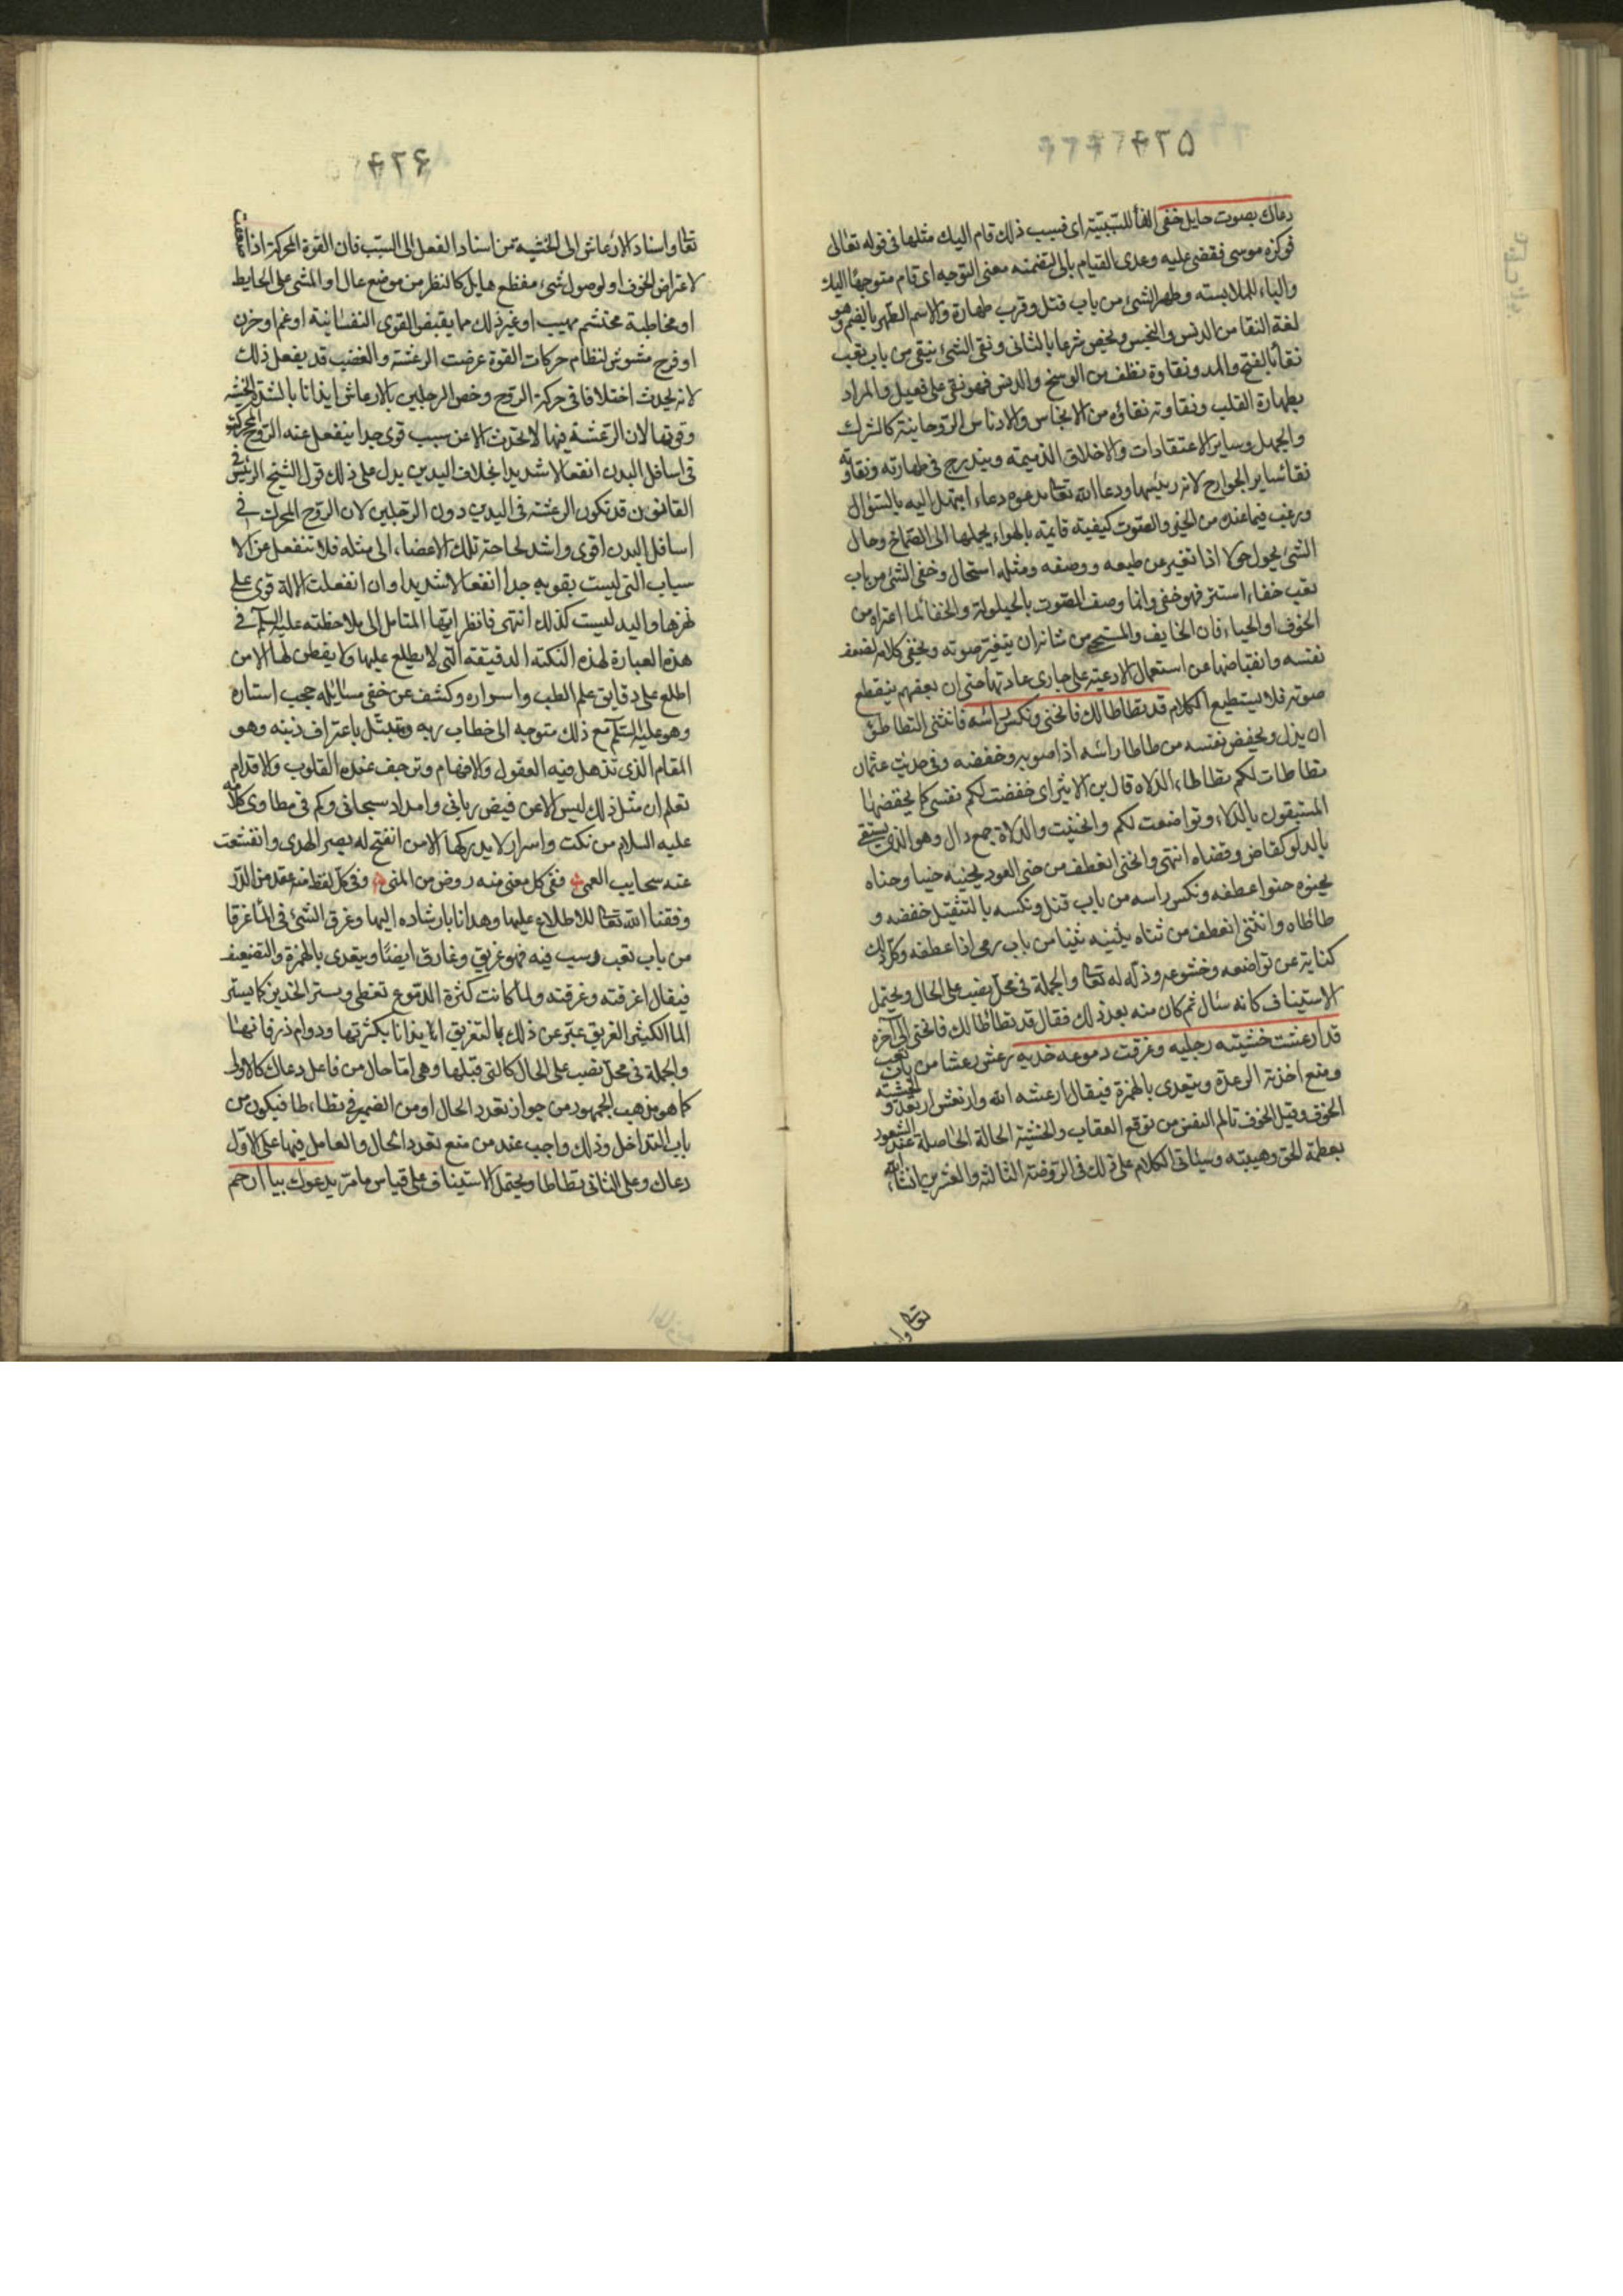 ٤٢٥
دعاك بصوت حايل خفى الفا للسببية اى فبسبب ذلك قام اليك مثلها فى قوله تعالى
فوكزه موسى فقضى عليه وعدى القيام بالى لتضمنه معنى التوجه اى قام متوجها اليك
والباء للملابسته وطهر الشئ من باب قتل وقرب طهارة والاسم الطهر بالضم وهو
لغة النقا من الدنس والنجس ويخص شرعا بالثانى ونقى الشئ ينقى من باب تعب
نقاء بالفتح والمد ونقاوة نظف من الوسخ والدنس فهو نقى على فعيل والمراد
بطهارة القلب ونقاوته نقاؤه من الانجاس والادناس الروحانية كالشرك
والجهل وساير الاعتقادات والاخلاق الذميمته ويندرج فى طهارته ونقاوته
نقا ساير الجوارح لانه رئيسها ودعا الله تعا يدعوه دعاء ابتهل اليه بالسؤال
ورغب فيما عنده من الخير والصوت كيفيته قايمته بالهواء يحملها الى الصماخ وحال
الشئ يحول حولا اذا تغير عن طبعه ووصفه ومثله استحال وخفى الشئ من باب
تعب خفاء استتر فهو خفى وانما وصف الصوت بالحيلولة والخفا لما اعتراه من
الخوف او الحياء فان الخايف والمستحى من شانه ان يتغير صوته ويخفى كلامه لضعف
نفسه وانقباضها عن استعمال الادعية على جارى عادتها حتى ان بعضهم ينقطع
صوته فلا يستطيع الكلام قد تطاطا لك فانحنى ونكس راسه فانثنى التطاطؤ
ان يذل ويخفض نفسه من طاطا راسه اذا صوبه وخفضه وفى حديث عثمان
تطاطات لكم تطاطاء الدلاة قال بن الاثير اى خفضت لكم نفسى كما يخفضها
المستقون بالدلاء وتواضعت لكم وانحنيت والدلاة جمع دال وهو الذى يستقى
بالدلو كقاض وقضاه انتهى وانحنى انعطف من حنى العود يحنيه حنيا وحناه
يحنوه حنوا عطفه ونكس راسه من باب قتل ونكسه بالتثقيل خفضه و
طاطاه وانثنى انعطف من ثناه يثنيه ثنيا من باب رمى اذا عطفه وكل ذلك
كناية عن تواضعه وخشوعه وذله له تعا والجملة فى محل نصب على الحال ويحتمل
الاستيناف كانه سئال ثم كان منه بعد ذلك فقال قد تطاطا لك فانحنى الى آخره
قد ارعشت خشيته رجليه وغرقت دموعه خديه رعش رعشا من باب تعب
ومنع اخذته الرعدة ويتعدى بالهمزة فيقال ارعشه الله وارتعش ارتعد والخشية
الخوف وقيل الخوف تالم النفس من توقع العقاب والخشية الحالة الحاصلة عند الشعور
بعظمة الحق وهيبته وسيئاتى الكلام على ذلك فى الروضة الثالثه والعشرين انشاء الله
تعا واسناد
٤٢۶
تعا واسناد الارعاش الى الخشية من اسناد الفعل الى السبب فان القوة المحركة اذا ضعفت
لاعتراض الخوف او لوصول شئ مفظع هايل كالنظر من موضع عال او المشى على الحايط
او مخاطبة محتشم مهيب او غير ذلك مما يقبض القوى النفسانية او غم او حزن
او فرح مشوش لنظام حركات القوة عرضت الرعشة والغضب قد يفعل ذلك
لانه يحدث اختلافا فى حركة الروح وخص الرجلين بالارعاش ايذانا بالشدة الخشية
وقوتها لان الرعشة فيها لا تحدث الا عن سبب قوى جدا ينفعل عنه الروح المحركة
فى اسافل البدن انفعالا شديدا بخلاف اليدين يدل على ذلك قول الشيخ الرئيس فى
القانون قد تكون الرعشة فى اليدين دون الرجلين لان الروح المحرك فى
اسافل البدن اقوى واشد لحاجة تلك الاعضاء الى مثله فلا تنفعل عن الا
سباب التى ليست بقويه جدا انفعالا شديدا وان انفعلت الآلة قوى على
قهرها واليد ليست كذلك انتهى فانظر ايها المتامل الى ملاحظته عليه السلم فى
هذه العبارة لهذه النكتة الدقيقة التى لا يطلع عليها ولا يفطن لها الا من
اطلع على دقايق علم الطب واسراره وكشف عن خفى مسائله حجب استاره
وهو عليه السلم مع ذلك متوجه الى خطاب ربه ومتبتل باعتراف ذنبه وهو
المقام الذى تذهل فيه العقول والافهام وترجف عنده القلوب والاقدام
تعلم ان مثل ذلك ليس الا عن فيض ربانى وامداد سبحانى وكم فى مطاوى كلامه
عليه السلام من نكت واسرار لا يدركها الا من انفتح له بصر الهدى وانقشعت
عنه سحايب العمى ففى كل معنى منه روض من المنى وفى كل لفظ منه عقد من الدر
وفقنا الله تعا للاطلاع عليها وهدانا بارشاده اليها وغرق الشئ فى الماء غرقا
من باب تعب رسب فيه فهو غريق وغارق ايضا ويتعدى بالهمزة والتضعيف
فيقال اغرقته وغرقته ولما كانت كثرة الدموع تغطى ويستر الخدين كما يستر
الماء الكثير الغريق عبر عن ذلك بالتغريق ايذانا بكثرتها ودوام ذرفانها
والجملة فى محل نصب على الحال كالتى قبلها وهى اما حال من فاعل دعاك كالاولى
كما هو مذهب الجمهور من جواز تعدد الحال او من الضمير فى تطاءطا فيكون من
باب التداخل وذلك واجب عند من منع تعدد الحال والعامل فيها على الاول
دعاك وعلى الثانى تطاطا ويحتمل الاستيناف على قياس ما مر يدعوك بيا ارحم